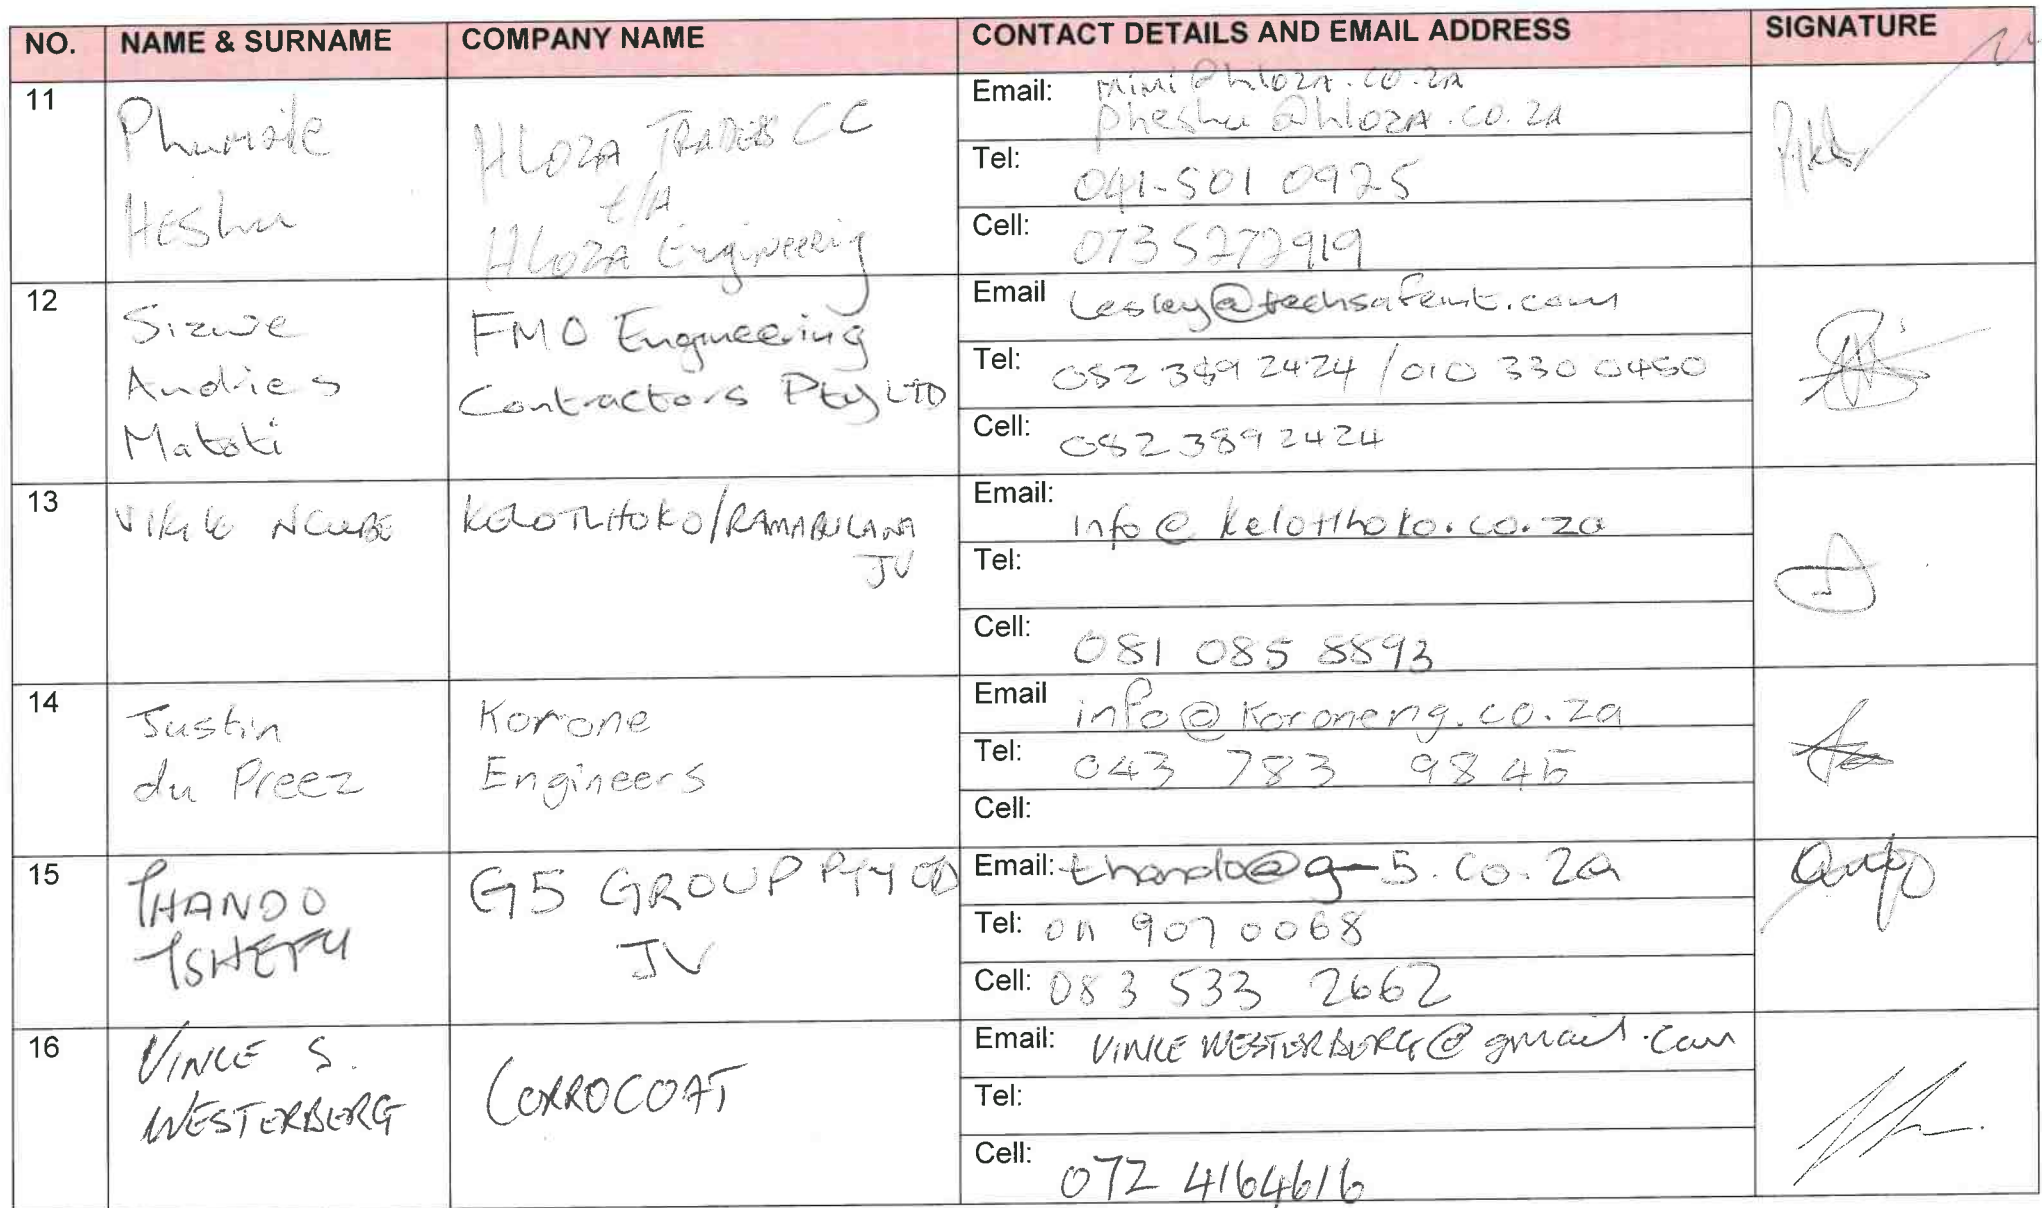 NO. NAME & SURNAME COMPANY NAME CONTACT DETAILS AND EMAIL ADDRESS SIGNATURE
11
Heshu
HLOZA TRADERS CC
t/A
HLOZA Engineering
Email: mimi@hloza.co.za
pheshu@hloza.co.za
Tel: 041-501 0925
Cell: 0735272919
12
Sizwe
Andries
Matoti
FMO Engineering
Contractors Pty LTD
Email Lesley@techsafeint.com
Tel: 082 389 2424 / 010 330 0450
Cell: 082 389 2424
13
NCUBE
KELOTLHOKO/RAMABULANA
JV
Email:
info@kelotlhoko.co.za
Tel:
Cell:
081 085 8893
14
Justin
du Preez
Korone
Engineers
Email info@koroneng.co.za
Tel: 043 783 9845
Cell:
15
THANDO
TSHEFU
G5 GROUP PTY LTD
JV
Email: thando@g-5.co.za
Tel: 011 907 0068
Cell: 083 533 2662
16
VINCE S.
WESTERBERG
CORROCOAT
Email: VINCEWESTERBERG@gmail.com
Tel:
Cell:
072 4164616